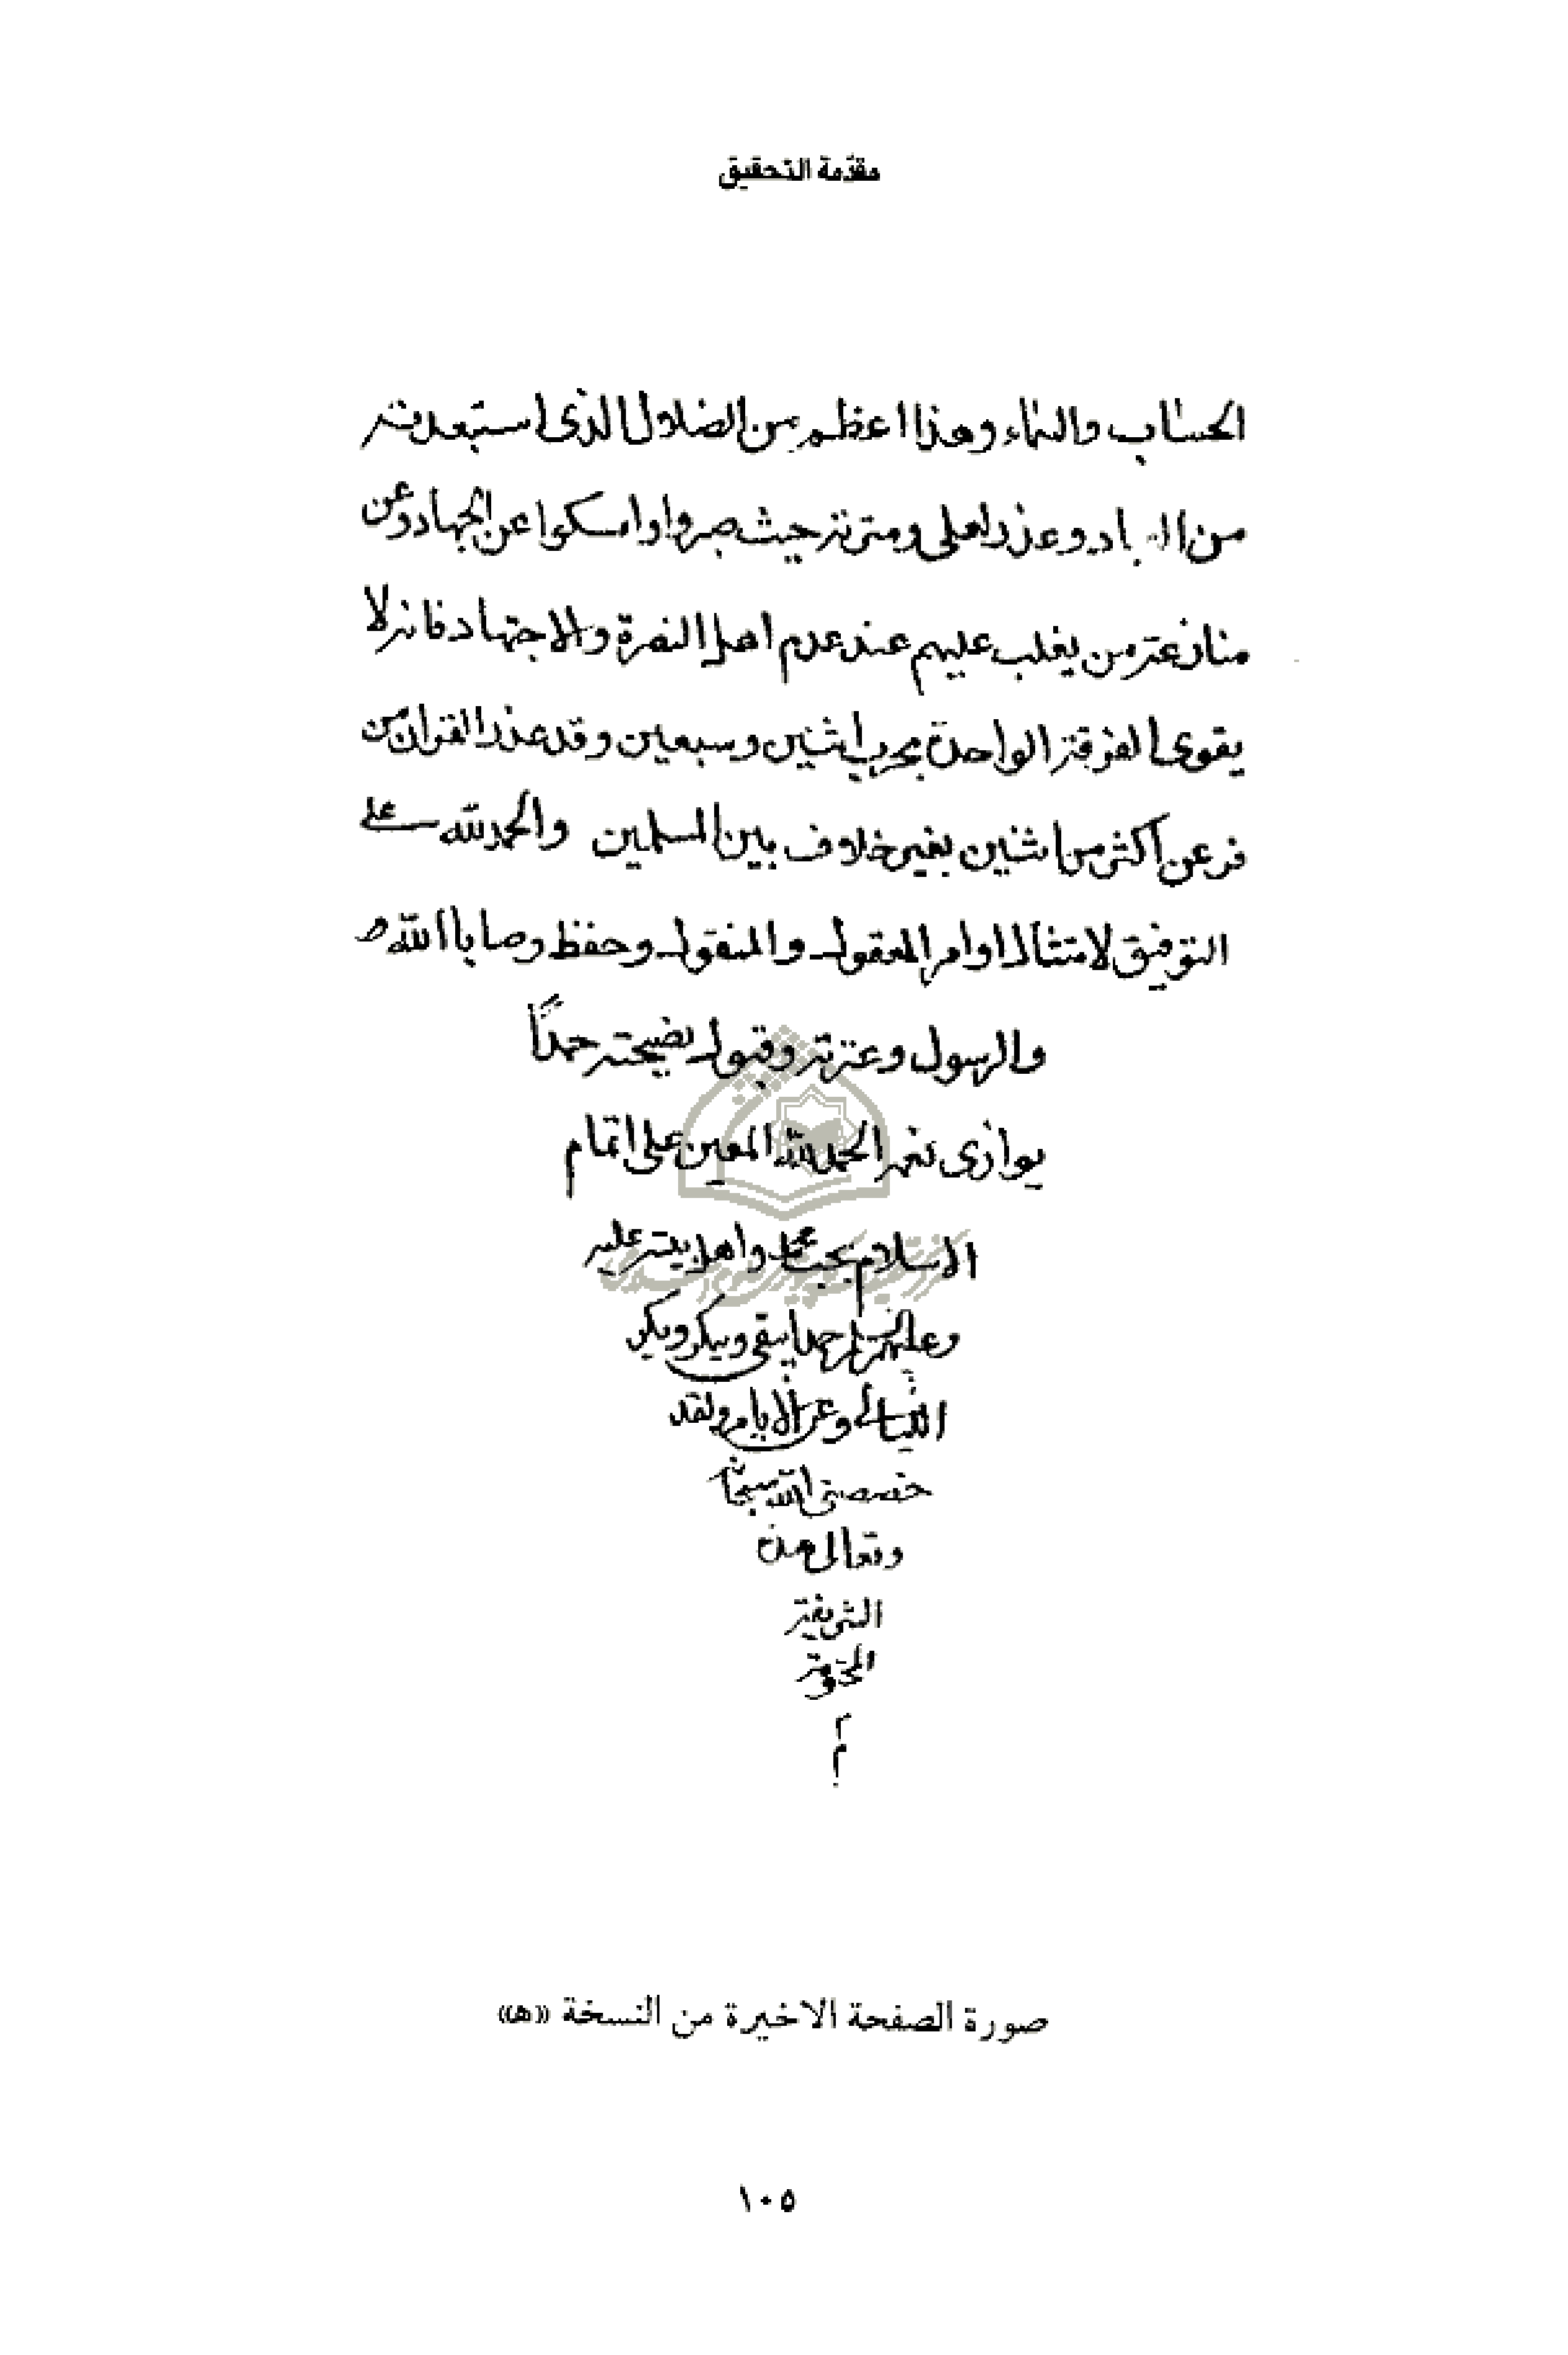 مقدّمة التحقيق
الحساب والنماء وهذا اعظم من الضلال الذى استبعدته
من العباد وعذر لعلى ومترته حيث صبروا وامسكوا عن الجهاد وعن
منازعته من يغلب عليهم عند عدم اهل النصرة والاجتهاد فانه لا
يقوى الفرقة الواحدة بحرب اثنين وسبعين وقد عذر القران من
فر عن اكثر من اثنين بغير خلاف بين المسلمين والحمد لله على
التوفيق لامتثال اوامر المعقول والمنقول وحفظ وصايا الله
والرسول وعترته وقبول نصيحته حمداً
يوازى نعمه الحمد لله المعين على اتمام
الاسلام بمحمد واهل بيته عليه
وعليهم حمدا يبقى
الليالى الايام ولقد
خصصنى الله سبحانه
وتعالى هذه
الشريفة
م
صورة الصفحة الاخيرة من النسخة «ه»
١٠٥